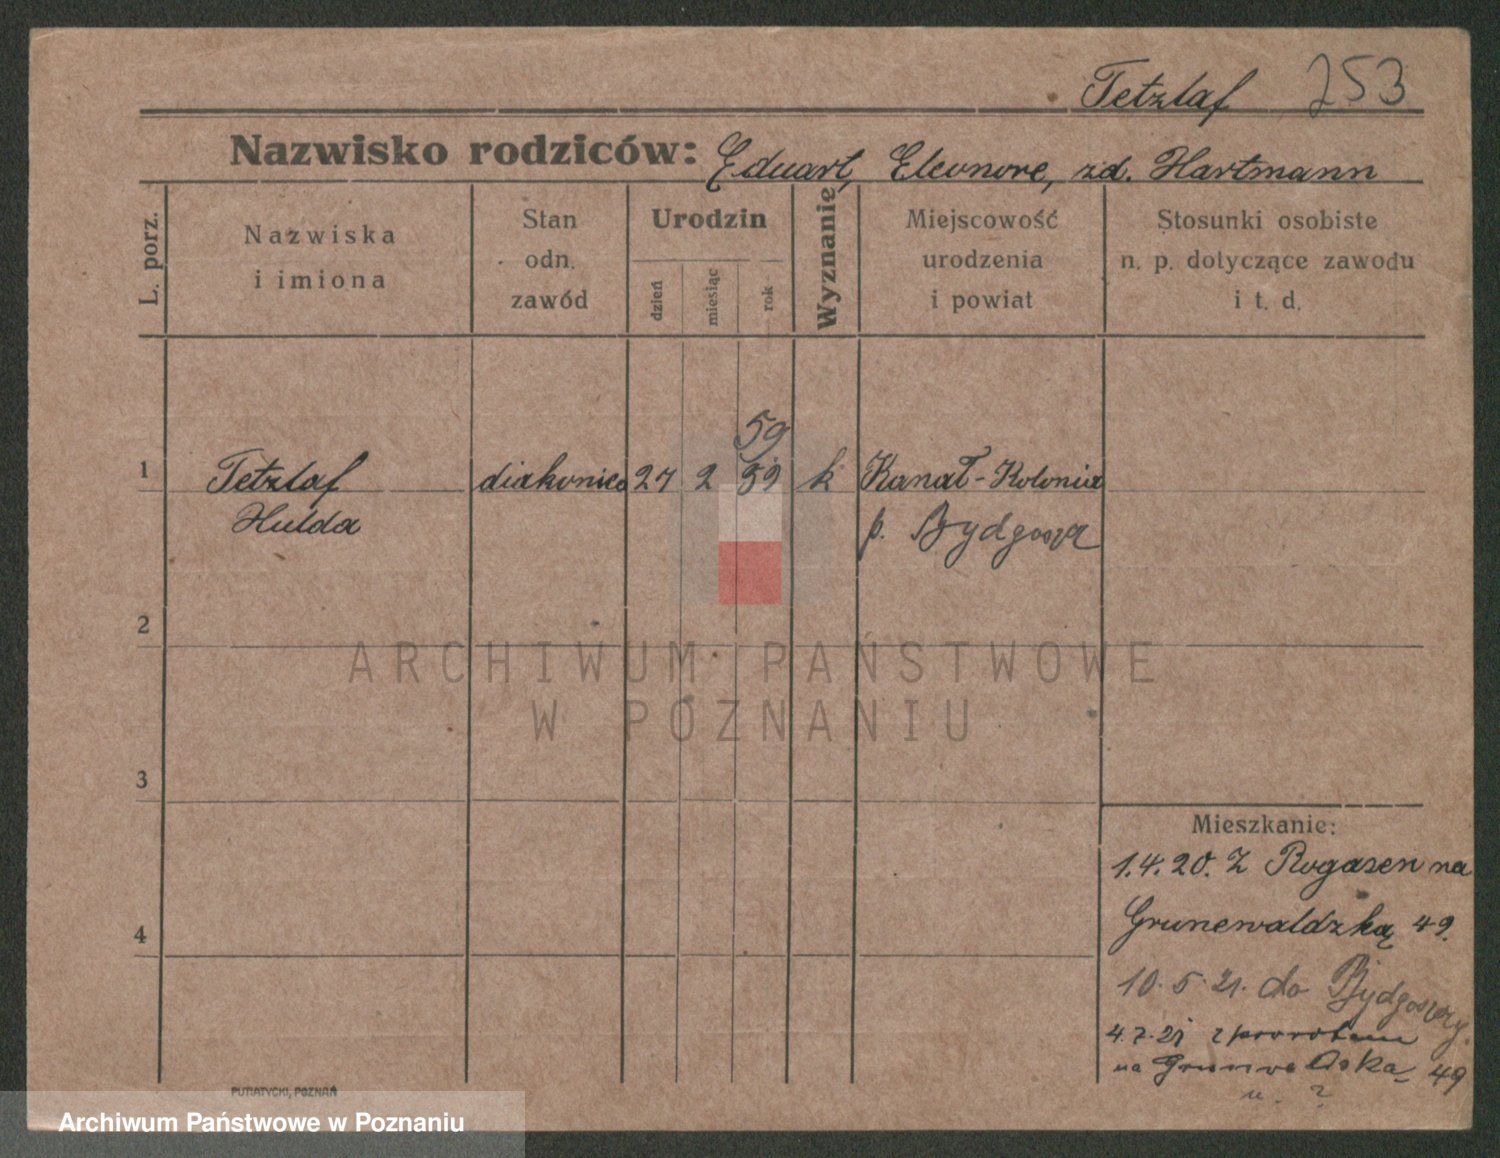 Tetzlaf 253
Nazwisko rodziców: Eduart, Eleonore, zd. Hartmann
L. porz.
Nazwiska
i imiona
Stan
odn.
zawód
Urodzin
dzień
miesiąc
rok
Wyznanie
Miejscowość
urodzenia
i powiat
Stosunki osobiste
n. p. dotyczące zawodu
i t. d.
59
1 Tetzlaf diakonica 27 2 59 k Kanał-Kolonia
Hulda p. Bydgoszcz
2
ARCHIWUM PAŃSTWOWE
W POZNANIU
3
Mieszkanie:
1.4.20. Z Rogasen na
Grunewaldzką 49.
4
10.5.21. do Bydgoszczy.
4.7.21 z powrotem
na Grunwaldska 49
PUTIATYCKI, POZNAŃ
Archiwum Państwowe w Poznaniu